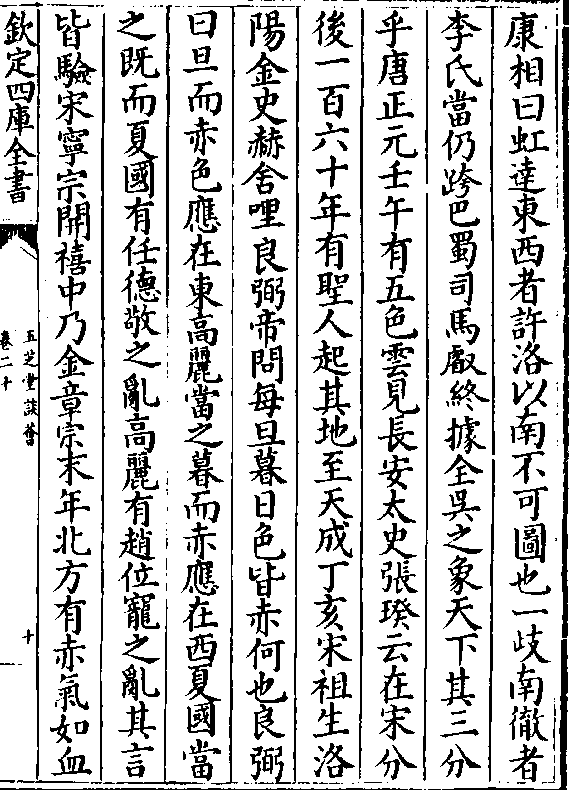 康相曰虹達東西者許洛以南不可圖也一歧南徹者
李氏當仍跨巴蜀司馬叡終據全吳之象天下其三分
乎唐正元壬午有五色雲見長安太史張㬒云在宋分
後一百六十年有聖人起其地至天成丁亥宋祖生洛
陽金史赫舍哩良弼帝問每旦暮日色皆赤何也良弼
曰旦而赤色應在東高麗當之暮而赤應在西夏國當
之既而夏國有任德敬之亂高麗有趙位寵之亂其言
皆驗宋寧宗開禧中乃金章宗末年北方有赤氣如血
欽定四庫全書
五芝堂談薈
卷二十
十